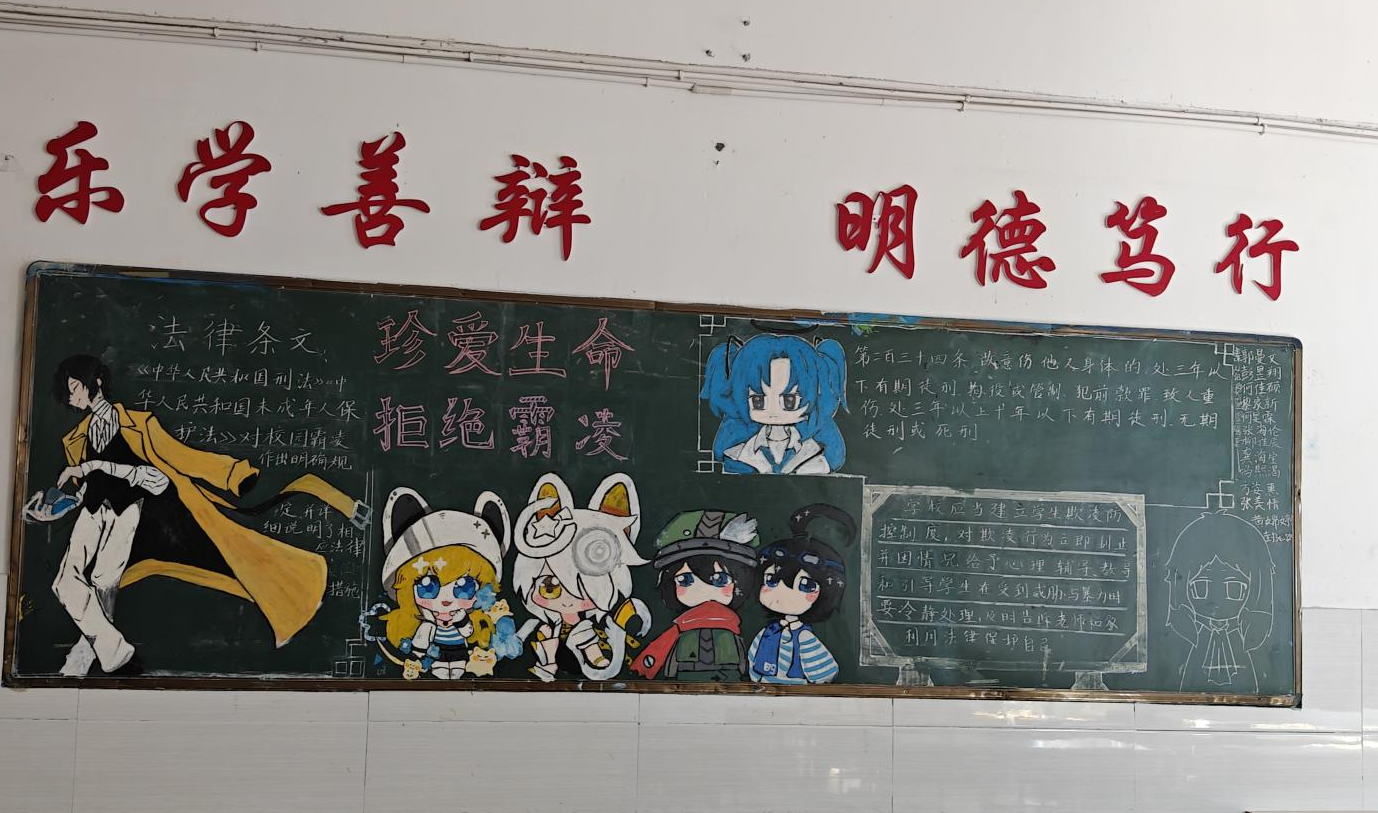 乐学善辩
明德笃行
法律条文
《中华人民共和国刑法》《中
华人民共和国未成年人保
护法》对校园霸凌
作出明确规
定,并详
细说明了相
应法律
措施
珍爱生命
拒绝霸凌
第二百三十四条 故意伤他人身体的,处三年以
下有期徒刑、拘役或管制,犯前款罪,致人重
伤,处三年以上十年以下有期徒刑、无期
徒刑或死刑
学校应当建立学生欺凌防
控制度,对欺凌行为立即制止
并因情况给予心理辅导、教导
和引导学生在受到威胁与暴力时
要冷静处理,及时告诉老师和家
利用法律保护自己
张美情